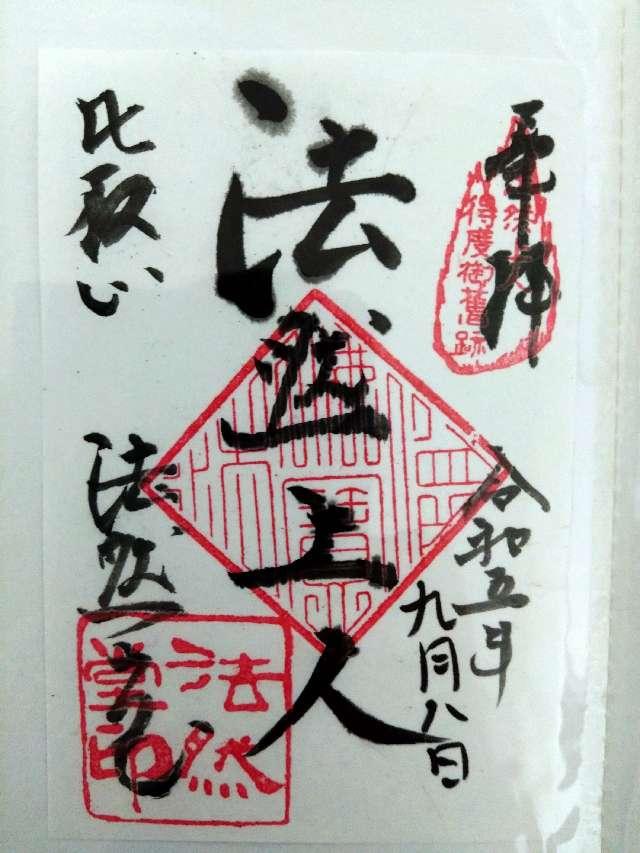 奉拝
得度御舊跡
令和五年
九月八日
法然上人
比叡山
法然堂
法然
堂印